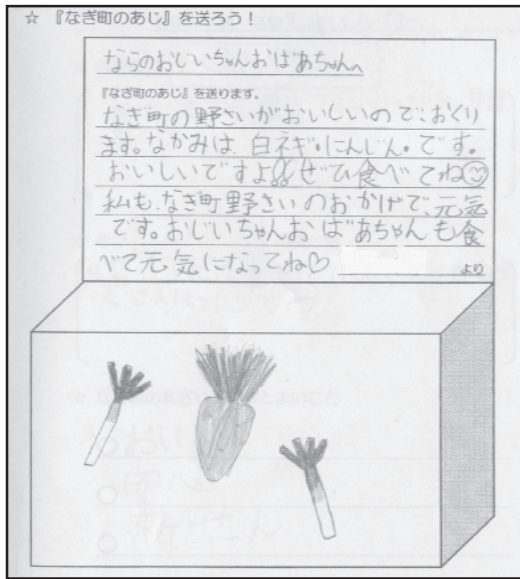 ☆ 『なぎ町のあじ』を送ろう!
ならのおじいちゃんおばあちゃんへ
『なぎ町のあじ』を送ります。
なぎ町の野さいがおいしいので、おくり
ます。なかみは、白ネギ・にんじん・です。
おいしいですよ!!ぜひ食べてね
私も、なぎ町野さいのおかげで、元気
です。おじいちゃんおばあちゃんも食
べて元気になってね♡
より